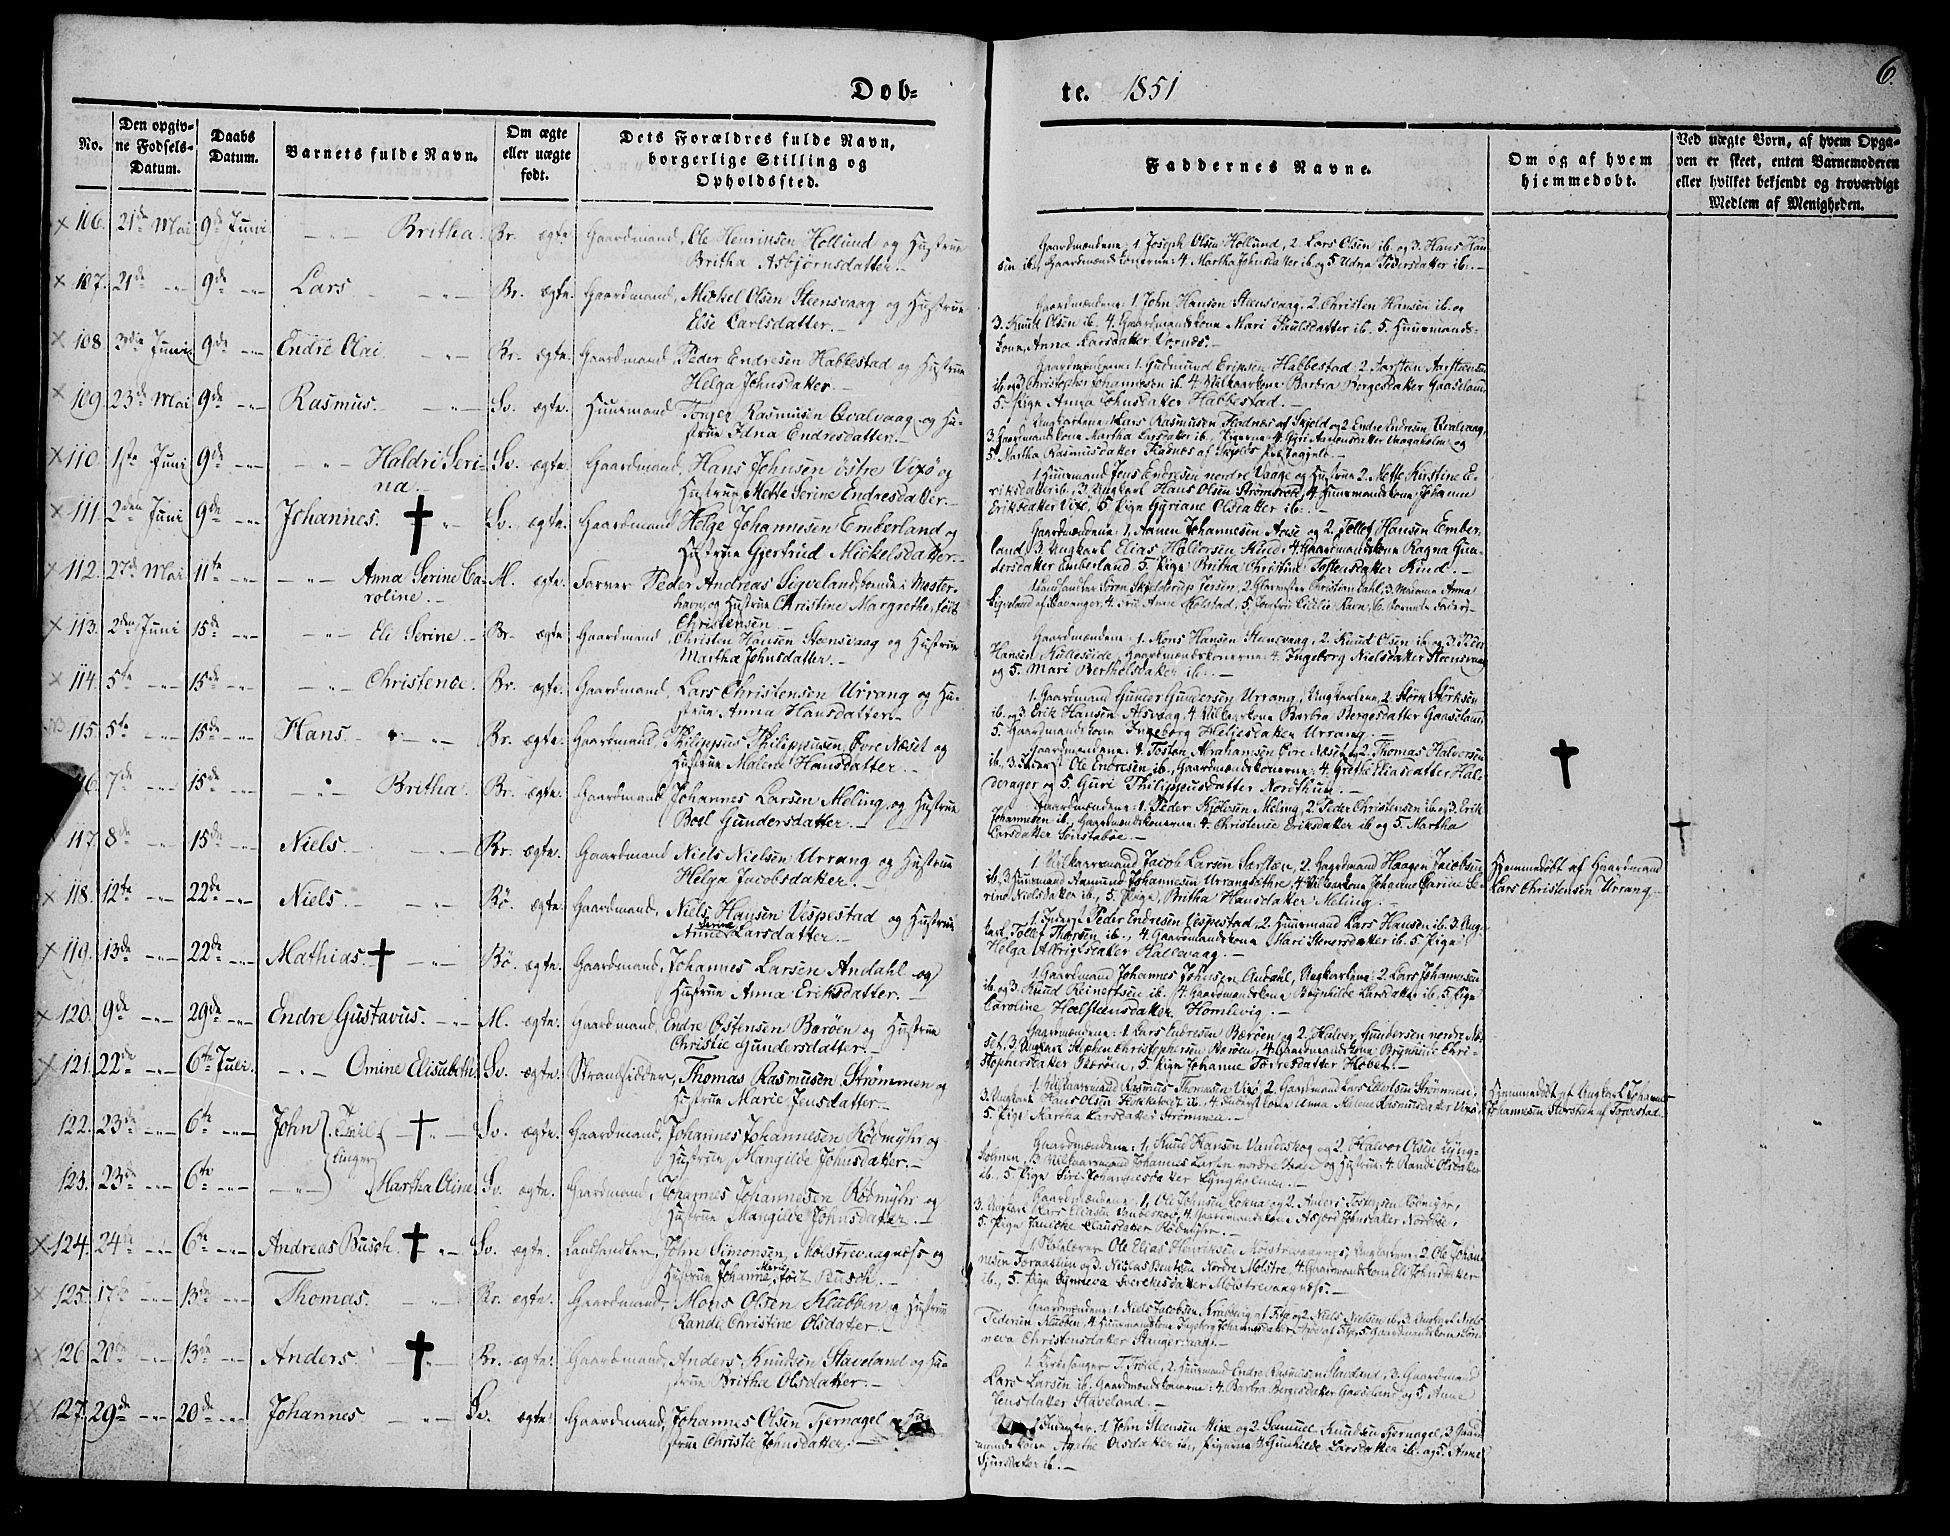 Dob-
te. 1851
6.
No.
Den opgiv-
ne Fodsels-
Datum.
Daabs
Datum.
Barnets fulde Navn.
Om ægte
eller uægte
født.
Dets Forældres fulde Navn,
borgerlige Stilling og
Opholdssted.
Faddernes Navne.
Om og af hvem
hjemmedobt.
Ved uægte Born, af hvem Opga-
ven er skeet, enten Barnemoderen
eller hvilket bekjendt og troværdigt
Medlem af Menigheden.
106. 21de Mai 9de Juni Britha. Br. ægte. Gaardmand, Ole Henriksen Hollund og Hustrue
Britha Asbjørnsdatter.
Gaardmændene: 1. Joseph Olsen Hollund, 2. Lars Olsen ib. og 3. Hans Han-
sen ib., Gaardmændskonerne: 4. Martha Johnsdatter ib. og 5. Udna Pedersdatter ib.
107. 21de 9de Lars Br. ægte. Gaardmand, Mickel Olsen Steensvaag og Hustrue
Else Carlsdatter.
Gaardmændene: 1. John Hansen Steensvaag, 2. Christen Hansen ib. og
3. Knut Olsen ib. 4. Gaardmandskone Mari Paulsdatter ib. 5. Huusmands-
kone, Anna Larsdatter
108. 3die Juni 9de Endre Olai Br. ægte. Gaardmand Peder Endresen Habbestad og Hustrue
Helga Johnsdatter.
Gaardmændene: 1. Gudmund Eriksen Habbestad, 2. Torsten
ib. og 3. Christopher Johannesen ib. 4. Vilkaarkone Barbra Borgesdatter Gaaseland
5. Pige Anna Johnsdatter Habbestad.
109. 23de Mai 9de Rasmus. Sv. ægte. Huusmand Torger Rasmusen Qvalvaag og Hu-
strue Idna Endresdatter.
Ungkarlene: 1. Lars Rasmusen Fladnæs af Skjold og 2. Endre Endresen Qvalvaag,
3. Gaardmandskone Martha Larsdatter ib., Pigerne: 4. Gyri
5. Martha Rasmusdatter Fladnæs af
110. 1ste Juni 9de Haldri Seri-
na. Sv. ægte. Gaardmand, Hans Johnsen østre Vixø og
Hustrue Mette Serine Endresdatter.
1. Huusmand Jens Endresen nordre Vaage og Hustrue 2. Mette Kirstine E-
riksdatter ib., 3. Ungkarl Hans Olsen Strømsvold, 4. Huusmandskone, Johanne
Eriksdatter Vixø, 5. Pige Gyriane Olsdatter ib.
111 2den Juni 9de Johannes. Sv. ægte. Gaardmand Helge Johannesen Emberland og
Hustrue Gjertrud Mickelsdatter.
Gaardmændene: 1. Aamen Johannesen Aase og 2. Tollef Hansen Ember-
land, 3. Ungkarl Elias Halvorsen Rind, 4. Gaardmandskone Ragna Gun-
dersdatter Emberland 5. Pige Britha Christine Tostensdatter Rind.
112. 27de Mai 11te Anna Serine Ca-
roline. M. ægte. Farver Peder Andreas Sigveland, boende i Moster-
havn, og Hustrue Christine Margrethe, født
Christensen
2. Garver Christian Dahl, 3. Madame Anna
Sigveland af Stavanger, 4. Frue Anne Holstad, 5. Jomfru Cicilie Ravn, 6.
113. 2den Juni 15de Eli Serine. Br. ægte. Gaardmand Christen Hansen Steensvaag og Hustrue
Martha Johnsdatter.
Gaardmændene: 1. Mons Hansen Steensvaag, 2. Knud Olsen ib. og 3. Peder
Hansen Kulleseide, Gaardmændskonerne: 4. Ingeborg Nielsdatter Steensvaag
og 5. Mari Berthelsdatter ib.
114. 5te 15de Christence. Br. ægte. Gaardmand, Lars Christensen Urrang og Hu-
strue Anna Hansdatter.
1. Gaardmand Gunder Gundersen Urrang, Ungkarlene, 2. Størk Størksen
ib. og 3. Erik Hansen Alsvaag, 4. Vilkaarkone Barbra Bergesdatter Gaaseland
5. Gaardmandskone Ingeborg Heljesdatter Urrang.
115. 5te 15de Hans Br. ægte. Gaardmand, Philippus Philippusen, Øvre Næset og
Hustrue Malene Hansdatter.
Gaardmændene: 1. Tosten Abrahamsen Øvre Næset og 2. Thomas Halvorsen
ib., 3. Inderst Ole Endresen ib., Gaardmændskonerne: 4. Grethe Eliasdatter Hal-
vorager og 5. Guri Philippusdatter Nordthun.
116. 7de 15de Britha. Br. ægte. Gaardmand Johannes Larsen Meling, og Hustrue
Boel Gundersdatter.
Gaardmændene: 1. Peder Njølesen Meling, 2. Peder Christensen ib. og 3. Erik
Johannesen ib., Gaardmændskonerne: 4. Christence Eriksdatter ib. og 5. Martha
Larsdatter Sønstabøe.
117. 8de 15de Niels. Br. ægte. Gaardmand Niels Nielsen Urrang og Hustrue
Helga Jacobsdatter.
1. Vilkaarsmand Jacob Larsen Sørstøen, 2. Gaardmand Haagen Jacobsen
ib., 3. Huusmand Aamund Johannesen Urrangsæthre, 4. Vilkaarkone Johanne Carine Se-
verine Nielsdatter ib., 5. Pige, Britha Hansdatter Meling.
Hjemmedøbt af Gaardmand
Lars Christensen Urrang.
118. 12te 22de Niels. Bø. ægte. Gaardmand, Niels Hansen Vespestad og Hustrue
Anne Serine Larsdatter.
1. Inderst Peder Endresen Vespestad, 2. Huusmand Lars Hansen ib. 3. Ung-
karl, Tollef Thorsen ib., 4. Gaardmandskone Mari Stenersdatter ib. 5. Pige
Helga Hallevaag.
119. 13de 22de Mathias. Bø. ægte. Gaardmand, Johannes Larsen Andahl og
Hustrue Anna Eriksdatter.
1. Gaardmand Johannes Johnsen Andahl, Ungkarlene: 2. Lars Johannesen
ib. og 3. Knud Reinertsen ib. 4. Gaardmandskone Brynhilde Larsdatter ib. 5. Pige
Caroline Halsteensdatter Homlevig.
120. 9de 29de Endre Gustavus. M. ægte. Gaardmand, Endre Østensen Børøen og Hustrue
Christie Gundersdatter.
Gaardmændene: 1. Lars Endresen Børøen og 2. Halvor Gundersen nordre Næ-
set, 3. Ungkarl Sticken Christophersen Børøen, 4. Gaardmandskone Brynnild Chri-
stophersdatter Børøen, 5. Pige Johanne Tørresdatter Hovet.
121. 22de 6te Juli. Omine Elisabeth. Sv. ægte. Strandsidder, Thomas Rasmusen Strømmen og
Hustrue Marie Jensdatter.
1. Vilkaarmand Rasmus Thomasen Vixø, 2. Gaardmand Lars Ellertsen Strømmen,
3. Ungkarl Hans Olsen 4. Inderstkone Anna Malene Rasmusdatter Vixø,
5. Pige Martha Larsdatter Strømmen.
Hjemmedøbt af Ungkarl Johannes
Johannesen Størstein af Tysvestad.
122. 23de 6te John Tvil-
linger Sv. ægte. Gaardmand, Johannes Johannesen Rødmyhr og
Hustrue, Mangilde Johnsdatter.
Gaardmændene: 1. Knud Hansen Vandeskog og 2. Halvor Olsen Lyng-
holmen, 3. Vilkaarsmand Johannes Larsen nordre og Hustrue 4. Randi Olsdatter
ib., 5. Pige Siri Johannesdatter Lyngholmen.
123. 23de 6te Martha Oline. Sv. ægte. Gaardmand, Johannes Johannesen Rødmyhr og
Hustrue Mangilde Johnsdatter.
Gaardmændene: 1. Ole Johnsen Lokna og 2. Anders Tostensen Rødmyhr,
3. Ungkarl Lars Eliasen Vandeskog, 4. Gaardmandskone Asbjør Johnsdatter Nordbø,
5. Pige Janicke Clausdatter Rødmyhr.
124. 24de 6te Andreas Busch. Sv. ægte. Landhandler, John Simonsen, Mølstrevaagnæss og
Hustrue Johanne Marie, født Busch.
1. Skolelærer Ole Elias Henriksen Mølstrevaagnæs, Ungkarlene: 2. Ole Johan-
nesen og 3. Niclas Bentsen Nordre Mølstre, 4. Gaardmandskone Eli Johnsdatter
ib., 5. Pige Synneva Sverkesdatter Mølstrevaagnæss.
125. 17de 13de Thomas. Br. ægte. Gaardmand, Mons Olsen Klubben og Hustrue
Randi Christine Olsdatter.
Gaardmændene: 1. Niels Jacobsen af og 2. Niels Nielsen ib., 3. Ungkarl Niels
Pedersen Klubben, 4. Huusmandskone Ingeborg Johannesdatter 5. Gaardmandskone Syn-
neva Christensdatter Stangervaag.
126 20de 13de Anders Br. ægte. Gaardmand, Anders Knudsen Staveland og Hu-
strue Britha Olsdatter.
1. Kirkesanger T. Trøen, 2. Huusmand Endre Rasmusen Staveland, 3. Gaardmand
Lars Larsen ib. Gaardmændskonerne: 4. Barbra Bergesdatter Gaaseland og 5. Anne
Jensdatter Staveland.
127. 29de 20de Johannes Sv. ægte. Gaardmand, Johannes Olsen Tjernagel og Hu-
strue Christie Johnsdatter.
1. John Steensen Vixe og 2. Samuel Knudsen Tjernagel, 3. Gaard-
mandskone Agathe Olsdatter ib., Pigerne 4. Gunhilde Larsdatter ib. og 5. Anne
Sjursdatter ib.